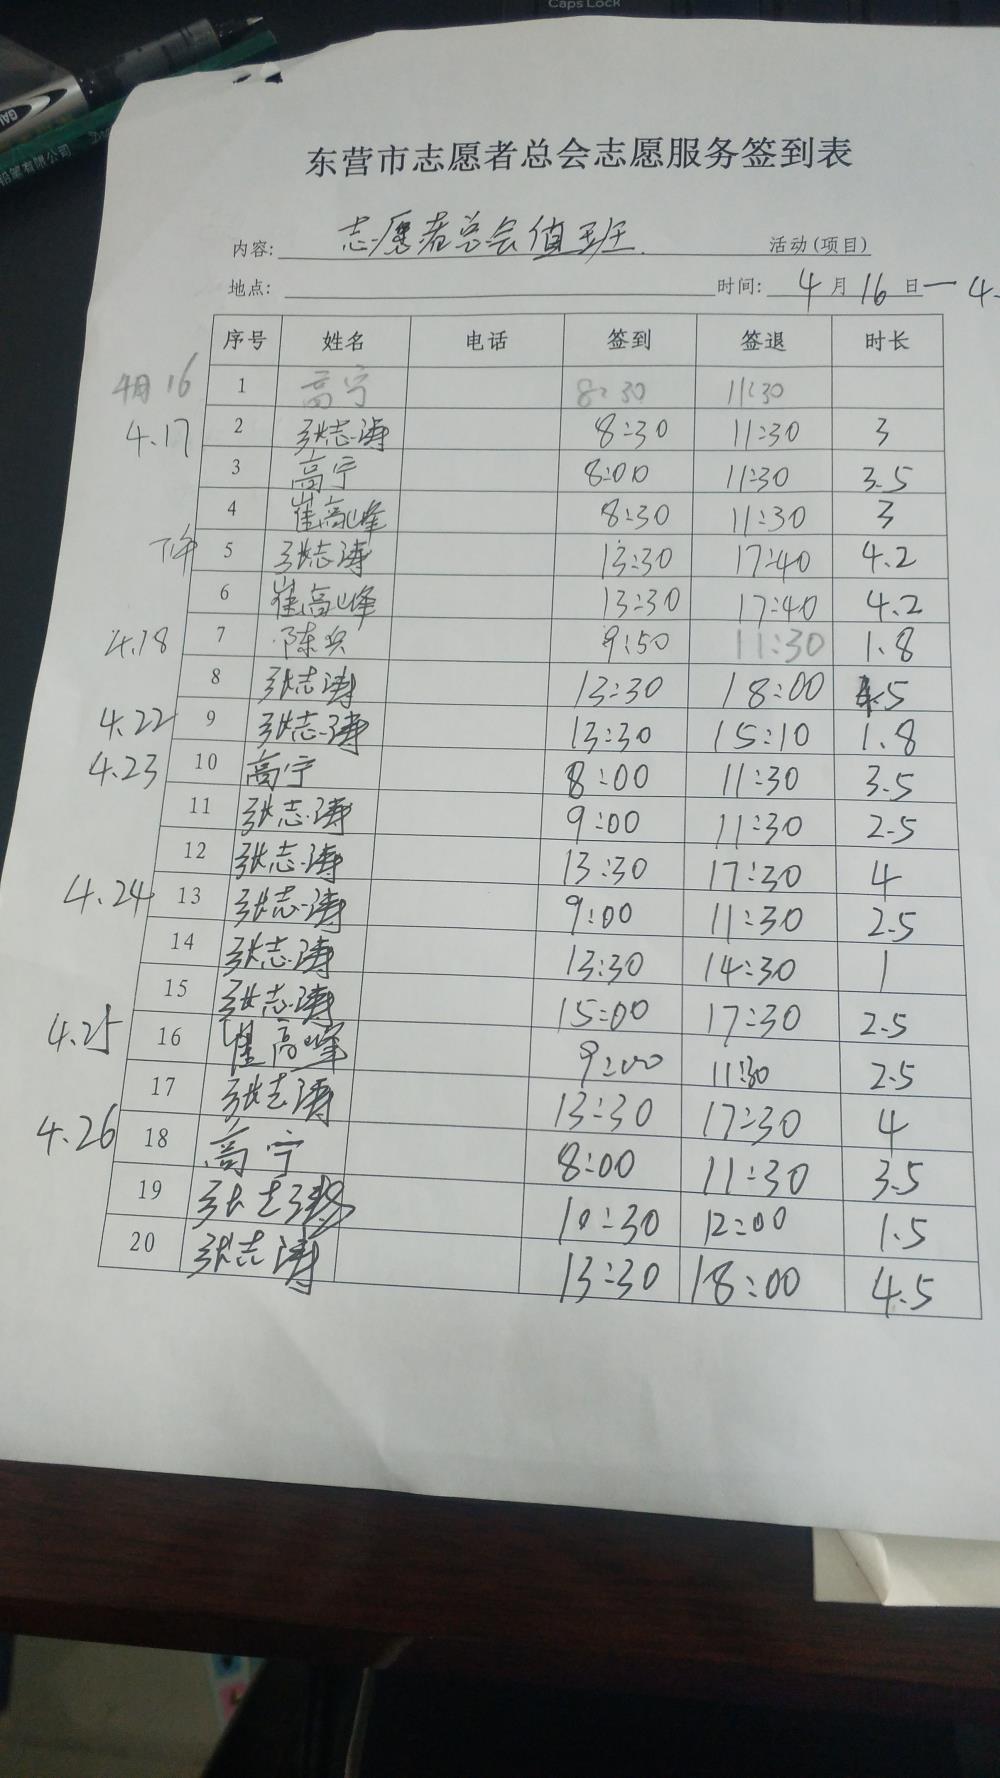 Caps Lock
铅笔有限公司
东营市志愿者总会志愿服务签到表
内容: 志愿者总会值班 活动(项目)
地点: 时间: 4月16日一4.
序号 姓名 电话 签到 签退 时长
4月16 1 高宁 8:30 11:30
4.17 2 张志涛 8:30 11:30 3
3 高宁 8:00 11:30 3.5
4 崔高峰 8:30 11:30 3
下午 5 张志涛 13:30 17:40 4.2
6 崔高峰 13:30 17:40 4.2
4.18 7 陈兵 9:50 11:30 1.8
8 张志涛 13:30 18:00 4.5
4.22 9 张志涛 13:30 15:10 1.8
4.23 10 高宁 8:00 11:30 3.5
11 张志涛 9:00 11:30 2.5
12 张志涛 13:30 17:30 4
4.24 13 张志涛 9:00 11:30 2.5
14 张志涛 13:30 14:30 1
15 张志涛 15:00 17:30 2.5
4.25 16 崔高峰 9:00 11:30 2.5
17 张志涛 13:30 17:30 4
4.26 18 高宁 8:00 11:30 3.5
19 张志涛 10:30 12:00 1.5
20 张志涛 13:30 18:00 4.5